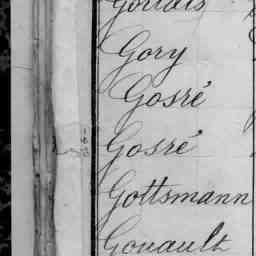 Gory
Gosré
Gosré
Gottsmann
Gouault